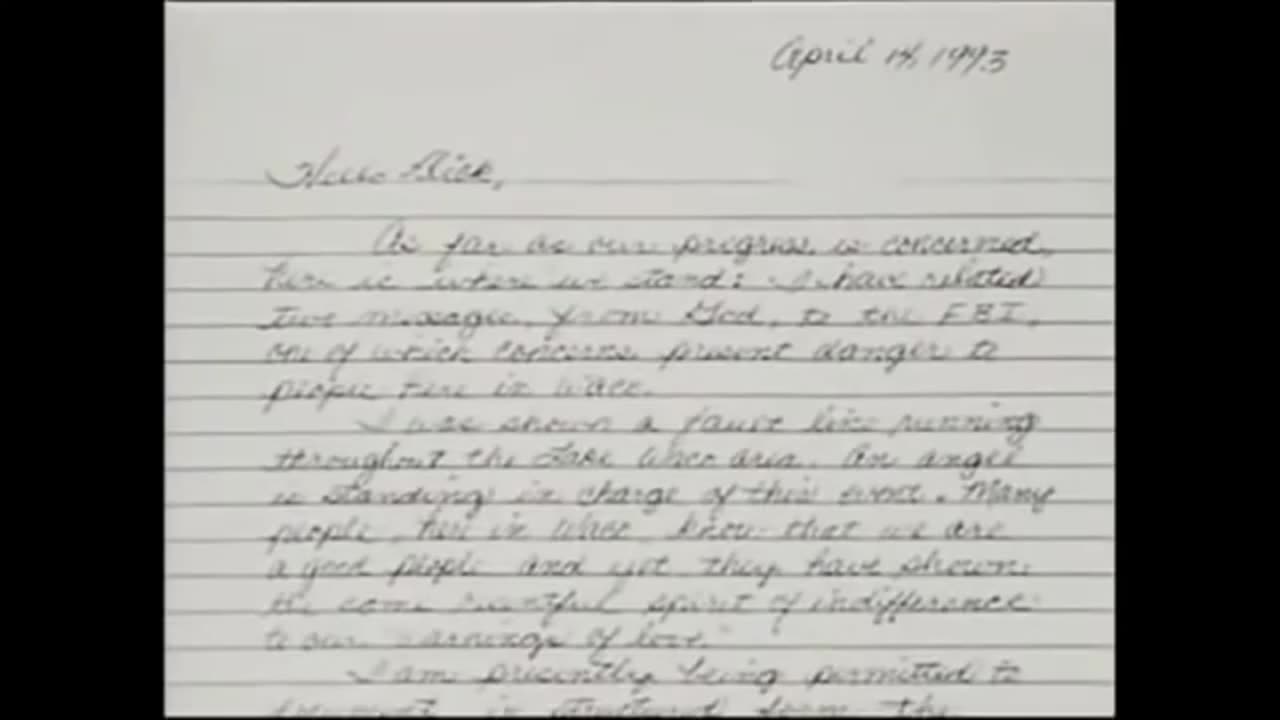 April 14, 1993
Hello Dick,
As far as our progress is concerned,
here is where we stand: I have related
two messages, from God, to the FBI,
one of which concerns present danger to
people here in Waco.
I was shown a fault line running
throughout the Lake Waco area. An angel
is standing in charge of this event. Many
people, here in Waco, know that we are
a good people and yet, they have shown
the same resentful spirit of indifference
to our "warnings of love."
I am presently being permitted to
document, in structured form, the